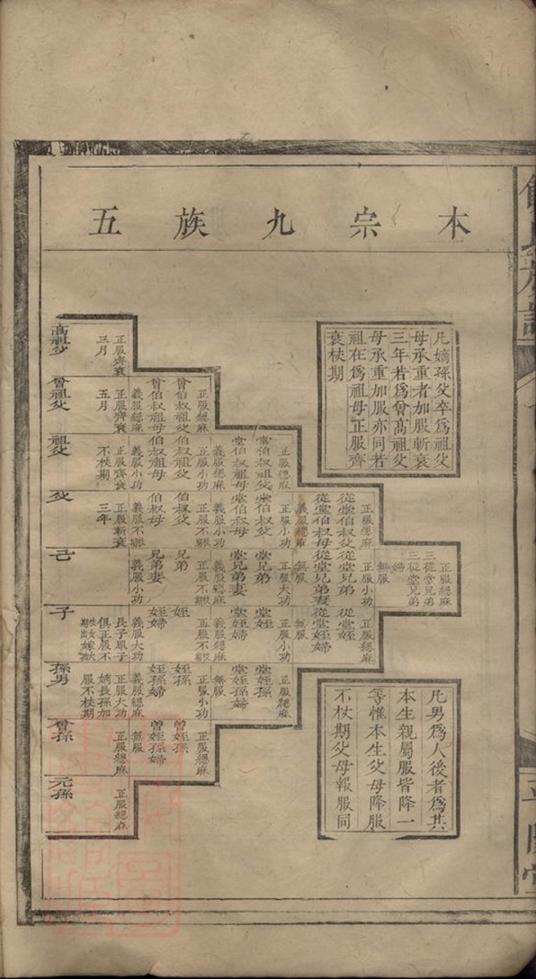 本宗九族五
凡嫡孫父卒為祖父
母承重者加服斬衰
三年若為曾高祖父
母承重加服亦同若
祖在為祖母正服齊
衰杖期
凡男為人後者為其
本生親屬服皆降一
等惟本生父母降服
不杖期父母報服同
高祖父
正服齊衰
三月
曾祖父
正服齊衰
五月
曾伯叔祖父
曾伯叔祖母
正服緦麻
義服緦麻
祖父
正服齊衰
不杖期
伯叔祖父
伯叔祖母
正服小功
義服小功
堂伯叔祖父
堂伯叔祖母
正服緦麻
義服緦麻
父
正服斬衰
三年
伯叔父
伯叔母
堂伯叔父
堂伯叔母
正服小功
義服小功
從堂伯叔父
從堂伯叔母
正服緦麻
義服緦麻
己
兄弟
兄弟妻
義服小功
堂兄弟
堂兄弟妻
正服大功
義服緦麻
從堂兄弟
從堂兄弟妻
正服小功
無服
三從堂兄弟
三從堂兄弟
婦
正服緦麻
無服
子
長子眾子
俱正服不
姪
姪婦
義服大功
堂姪
堂姪婦
正服小功
義服緦麻
從堂姪
從堂姪婦
正服緦麻
無服
孫男
正服大功
嫡長孫加
服不杖期
姪孫
姪孫婦
正服小功
義服緦麻
堂姪孫
堂姪孫婦
正服緦麻
無服
曾孫
正服緦麻
曾姪孫
曾姪孫婦
正服緦麻
無服
元孫
正服緦麻